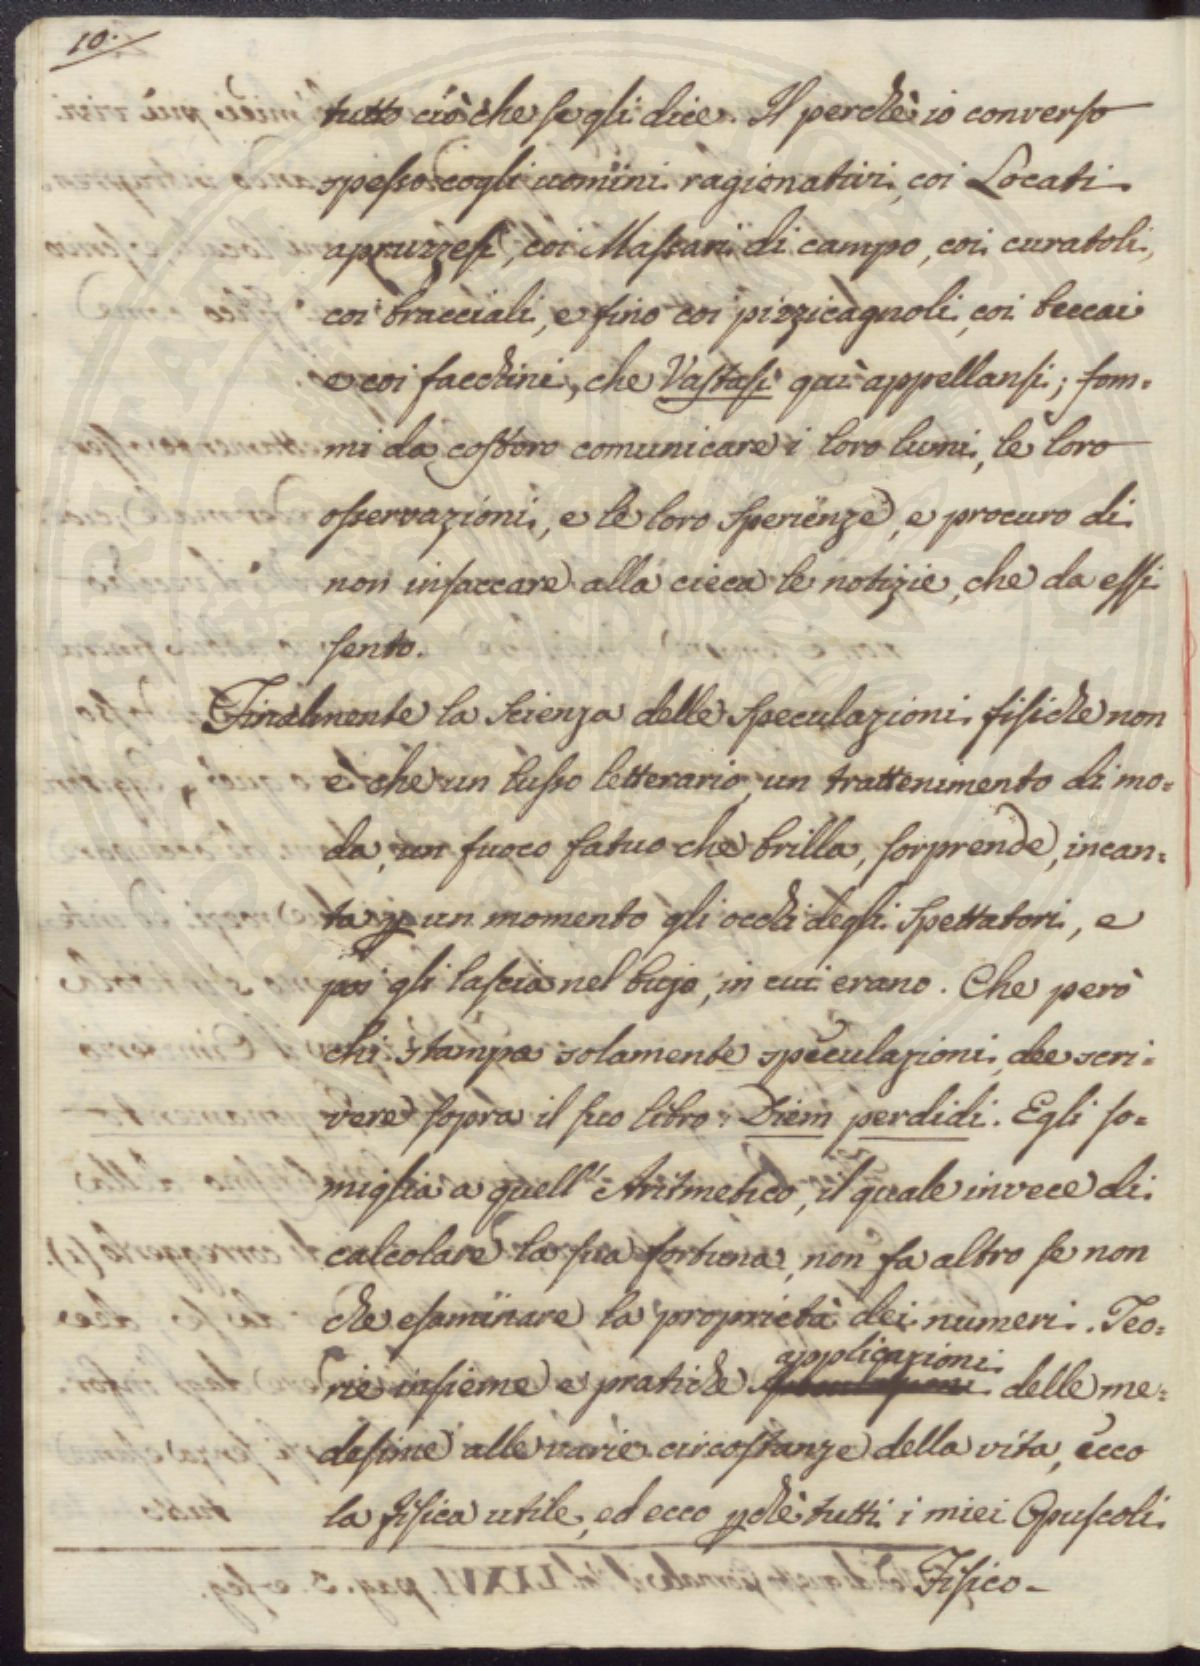 10.
tutto ciò che se gli dice. Il perchè io converso
spesso cogli uomini ragionativi, coi Locati
apruzzesi, coi Massari di campo, coi curatoli,
coi bracciali, e fino coi pizzicagnoli, coi beccai
e coi facchini, che Vastasi quì appellansi; fom=
mi da costoro comunicare i loro lumi, le loro
osservazioni, e le loro sperienze, e procuro di
non insaccare alla cieca le notizie, che da essi
sento.
Finalmente la scienza delle speculazioni fisiche non
è che un lusso letterario, un trattenimento di mo=
da, un fuoco fatuo che brilla, sorprende, incan=
ta p un momento gli occhi degli spettatori, e
poi gli lascia nel bujo, in cui erano. Che però
chi stampa solamente speculazioni, dee scri=
vere sopra il suo libro: Diem perdidi. Egli so=
miglia a quell' Aritmetico, il quale invece di
calcolare la sua fortuna, non fa altro se non
che esaminare la proprietà dei numeri. Teo=
applicazioni
rie insieme e pratiche delle me=
desime alle varie circostanze della vita, ecco
la fisica utile, ed ecco pchè tutti i miei Opuscoli
Fisico-